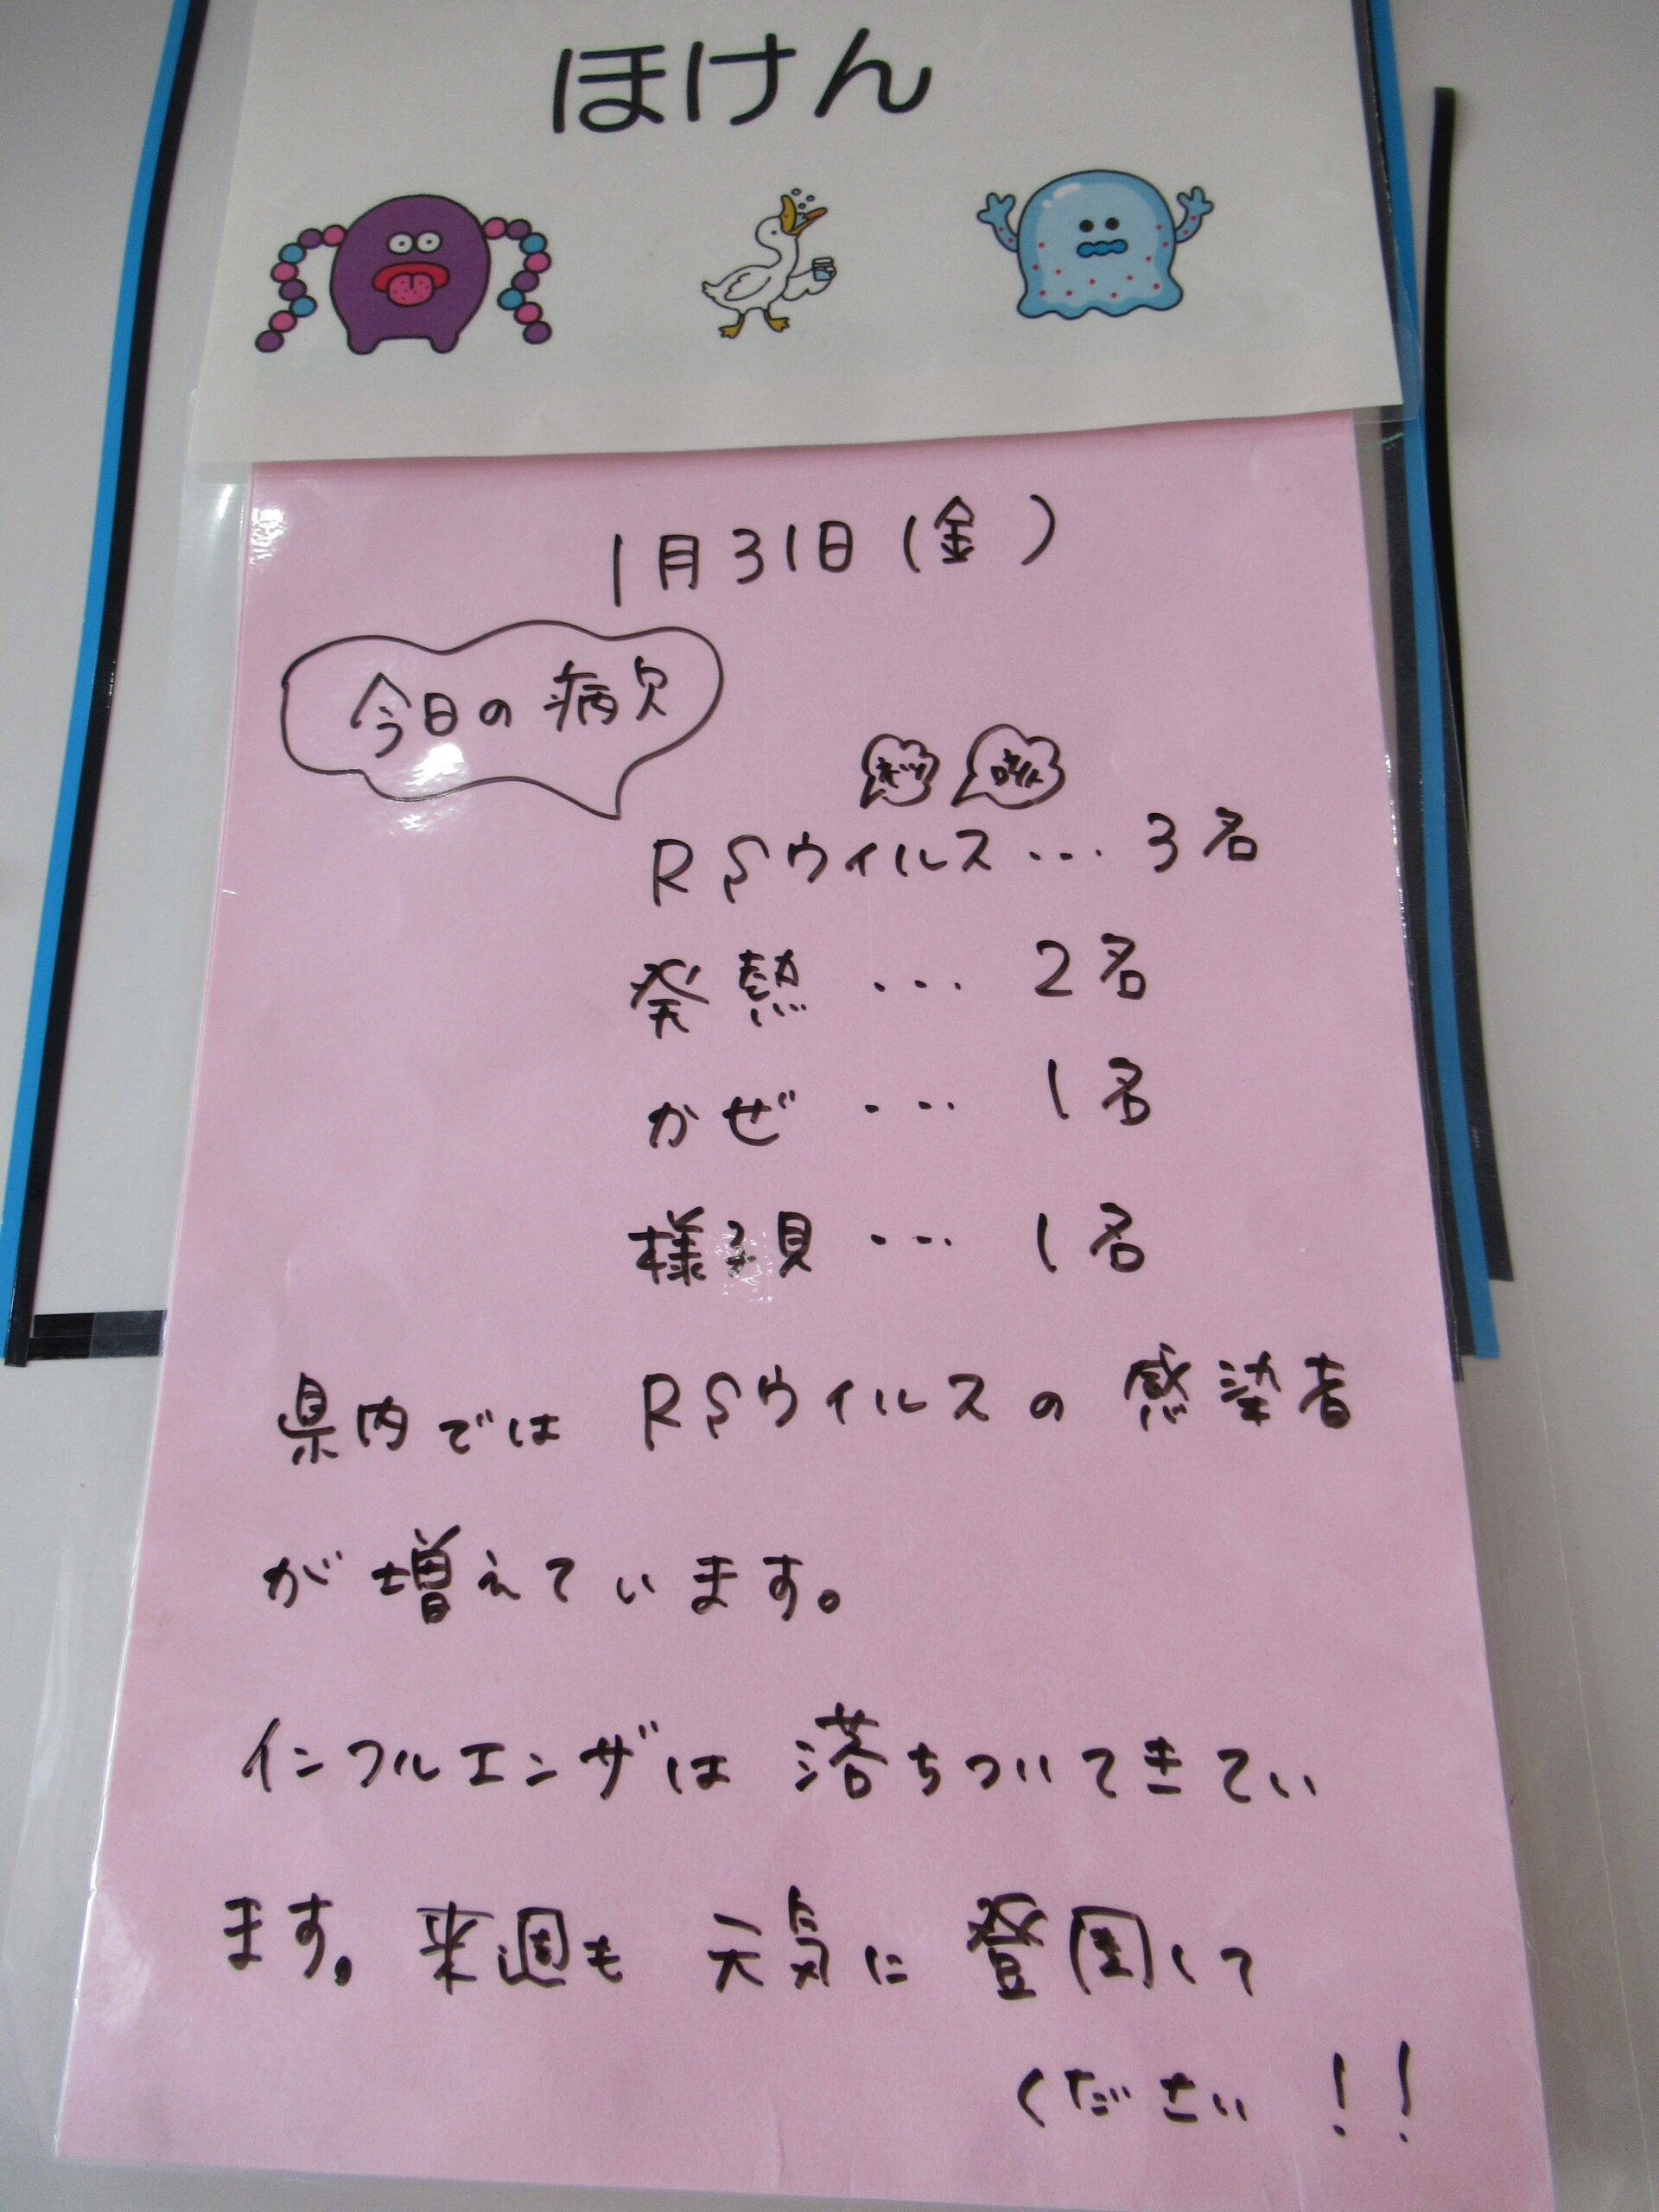 ほけん
1月31日(金)
今日の病欠
RSウイルス・・・3名
発熱・・・2名
かぜ・・・1名
様子見・・・1名
県内では RSウイルスの感染者
が増えています。
インフルエンザは 落ちついてきてい
ます。来週も 元気に 登園して
ください!!